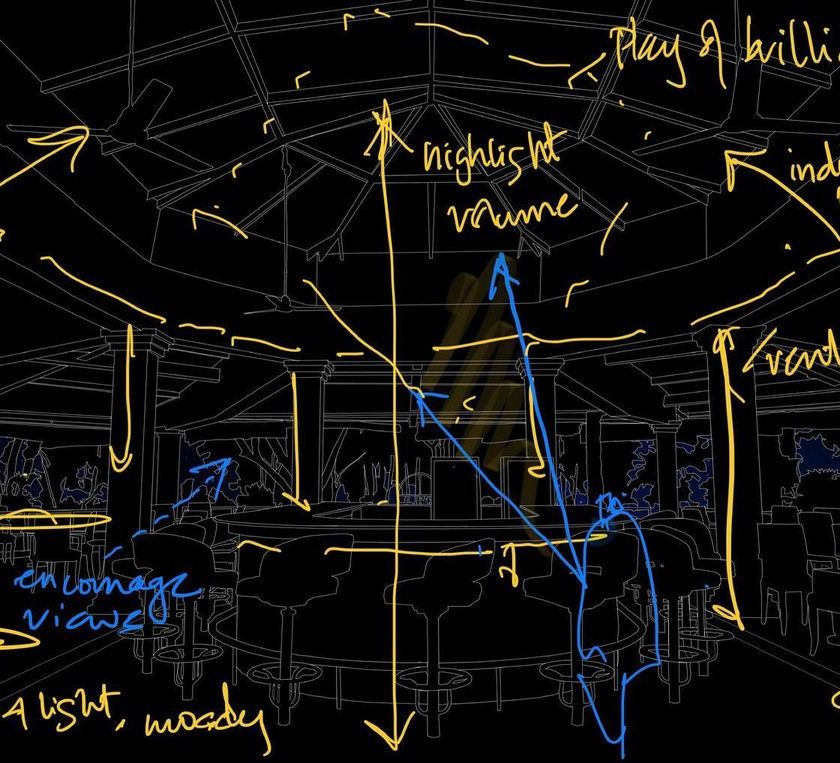 Play of brilli
highlight
volume
indi
encourage
views
light, moody